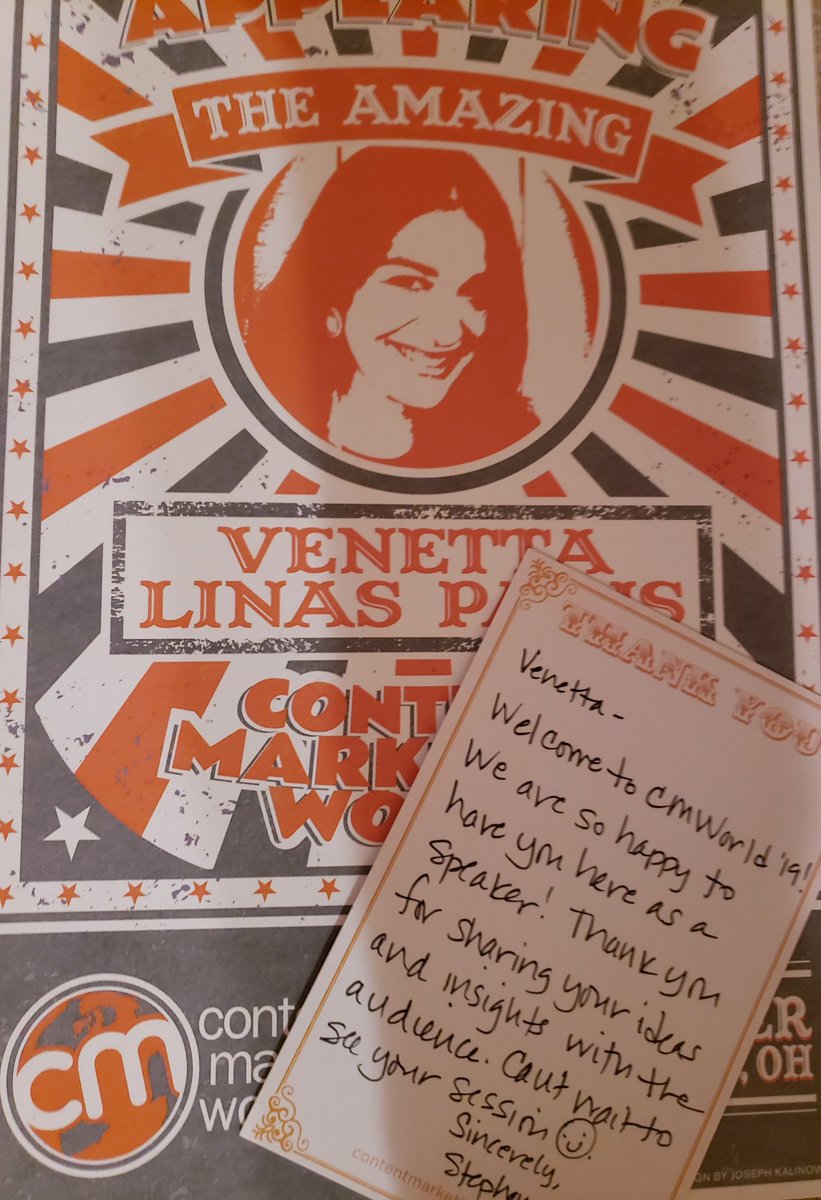 APPEARING
THE AMAZING
VENETTA
LINAS
CONT
MARK
WO
cm
cont
ma
wo
ER
, OH
GN BY JOSEPH KALINOW
THANK YOU
Venetta-
Welcome to CMWorld '19!
We are so happy to
have you here as a
speaker! Thank you
for sharing your ideas
and insights with the
audience. Can't wait to
see your session
Sincerely,
Steph
contentmarket